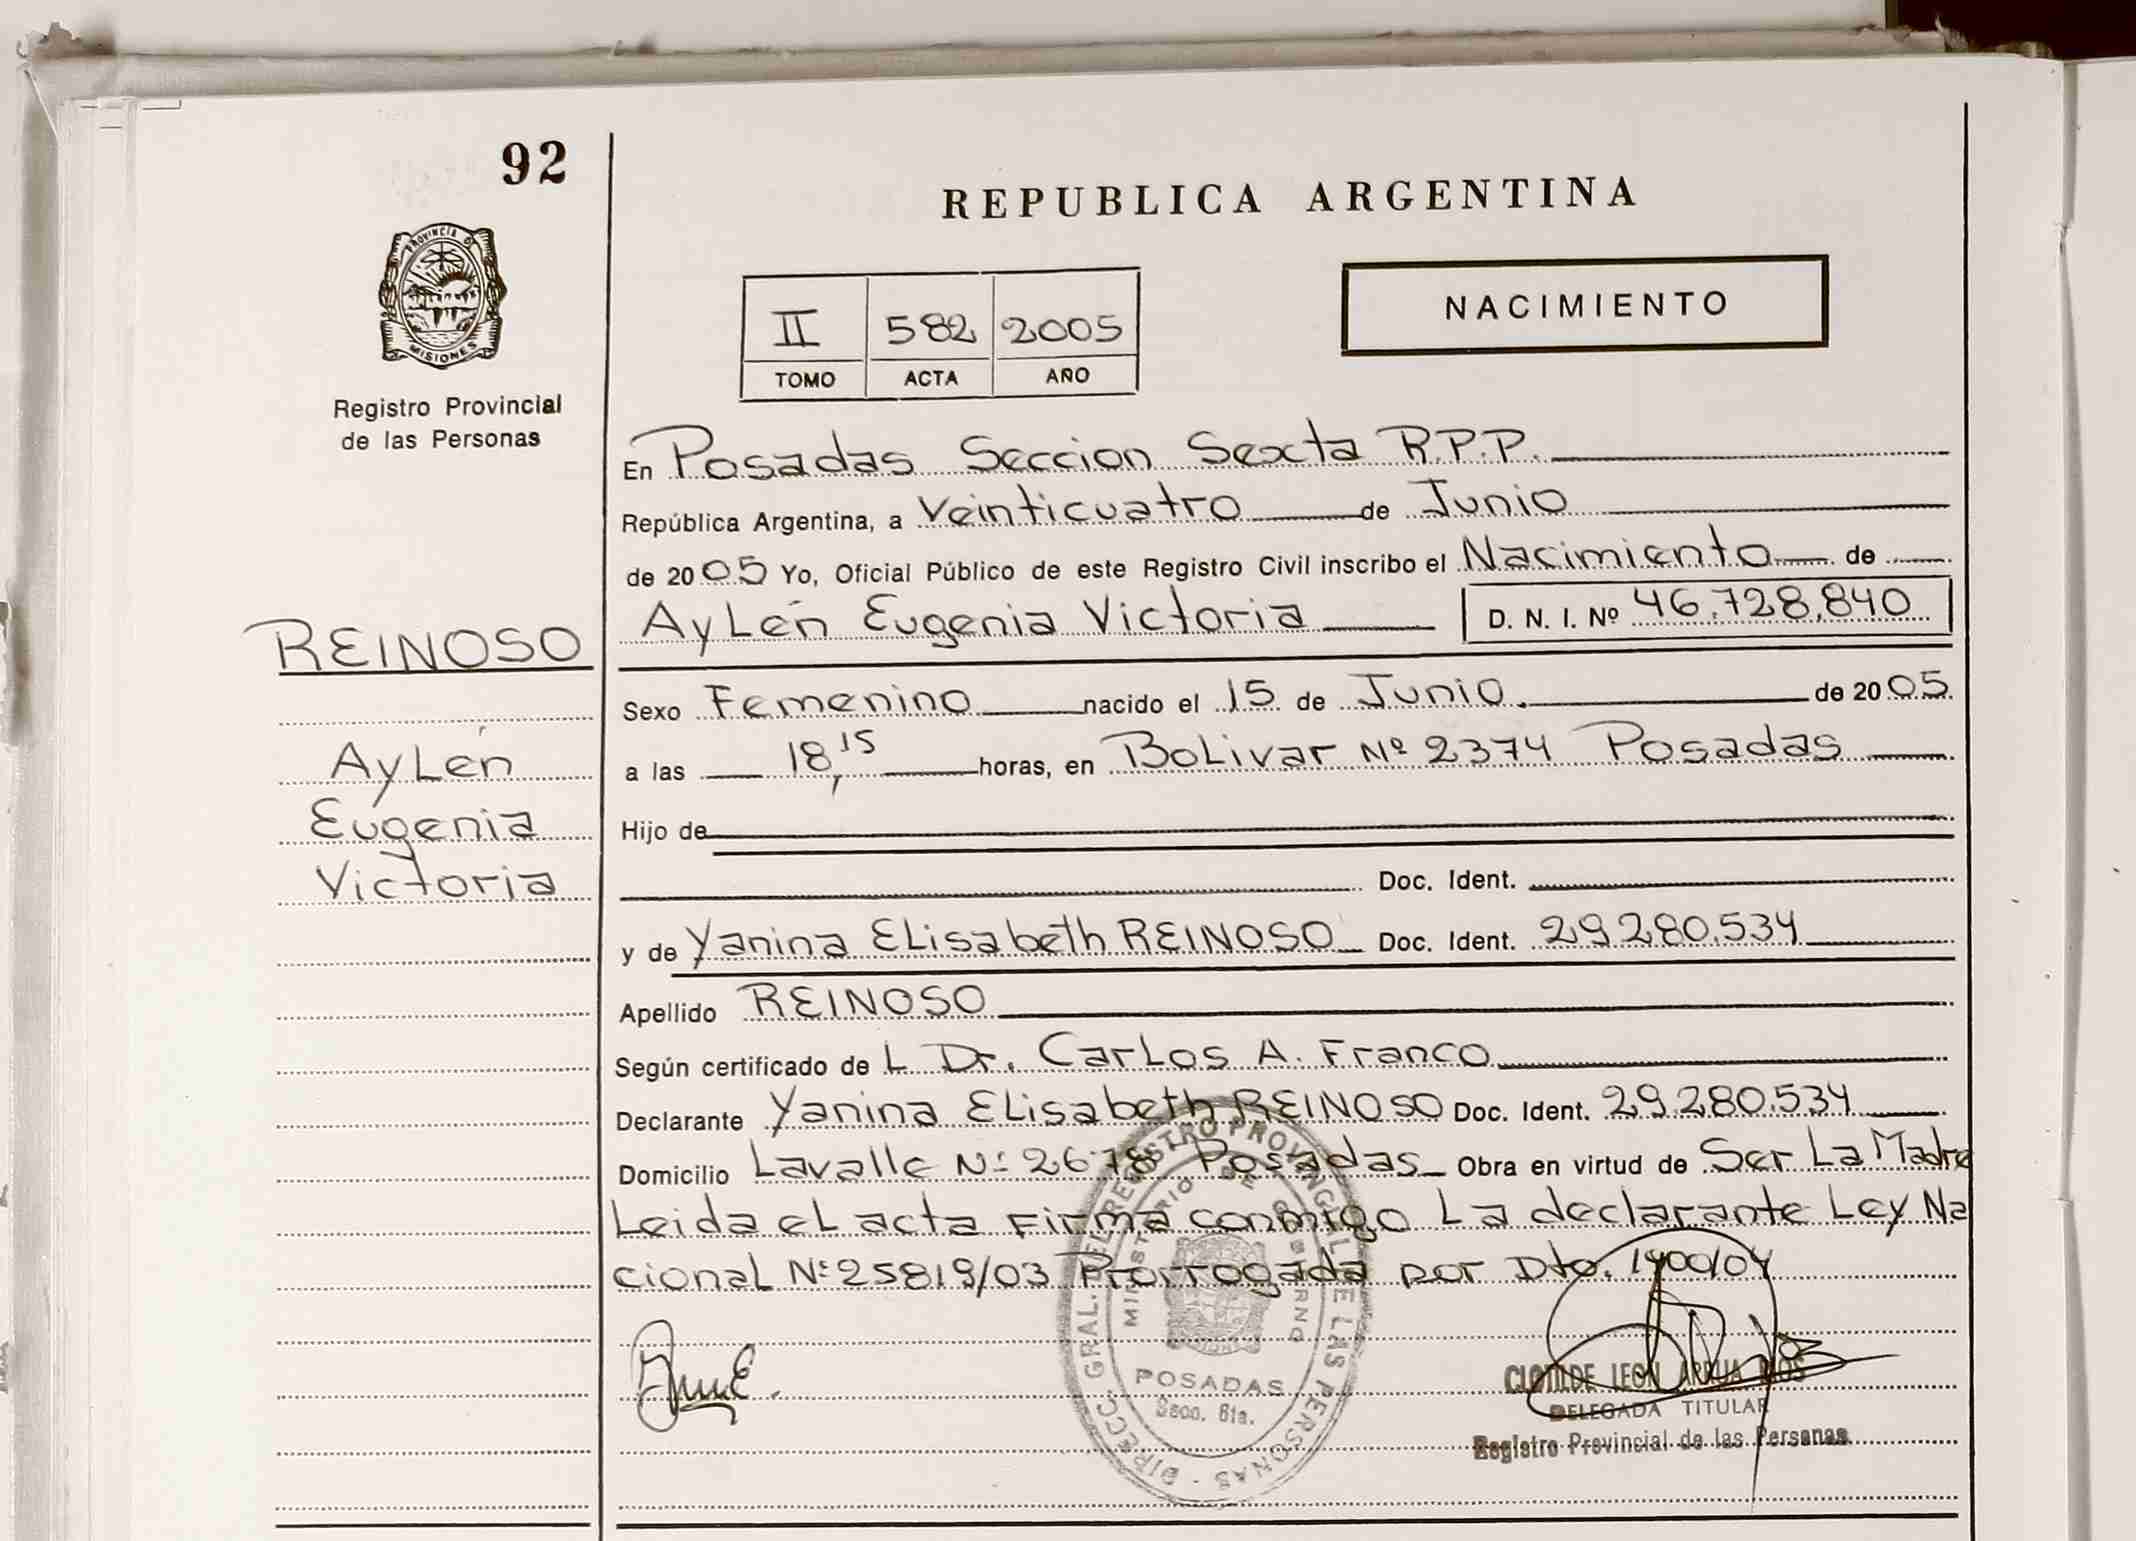 92
REPUBLICA ARGENTINA
PROVINCIA DE
MISIONES
Registro Provincial
de las Personas
II 582 2005
TOMO ACTA AÑO
NACIMIENTO
En Posadas Seccion Sexta R.P.P.
República Argentina, a Veinticuatro de Junio
de 2005 Yo, Oficial Público de este Registro Civil inscribo el Nacimiento de
AyLén Eugenia Victoria D. N. I. Nº 46.728.840
REINOSO
Sexo Femenino nacido el 15 de Junio. de 2005.
AyLén
a las 18,15 horas, en BoLivar Nº 2374 Posadas
Eugenia
Hijo de
Victoria
Doc. Ident.
y de Yanina ELisabeth REINOSO Doc. Ident. 29.280.534
Apellido REINOSO
Según certificado de L Dr. CarLos A. Franco
Declarante Yanina ELisabeth REINOSO Doc. Ident. 29.280.534
Domicilio Lavalle Nº 2678 Posadas Obra en virtud de Ser La Madre
Leida eL acta Firma conmigo La declarante Ley Na
cional Nº 25819/03 Prorrogada por Dto. 1900/04
DIRECC. GRAL. DEL REGISTRO PROVINCIAL DE LAS PERSONAS -
MINISTERIO DE GOBIERNO
POSADAS
Secc. 6ta.
CLOTILDE LEON ARRUA RIOS
DELEGADA TITULAR
Registro Provincial de las Personas